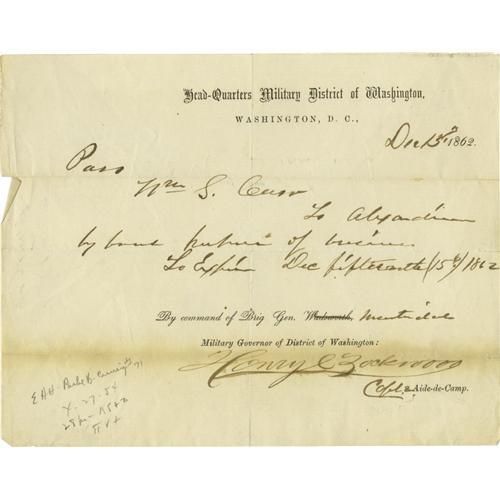 Head-Quarters Military District of Washington,
WASHINGTON, D. C.,
Dec 1862.
Pass
Wm S.
To Alexandria
by boat purpose of business
To Expire Dec fifteenth (15th) 1862
By command of Brig Gen. Wadsworth, Martindale
Military Governor of District of Washington:
Henry C Lockwood
Capt & Aide-de-Camp.